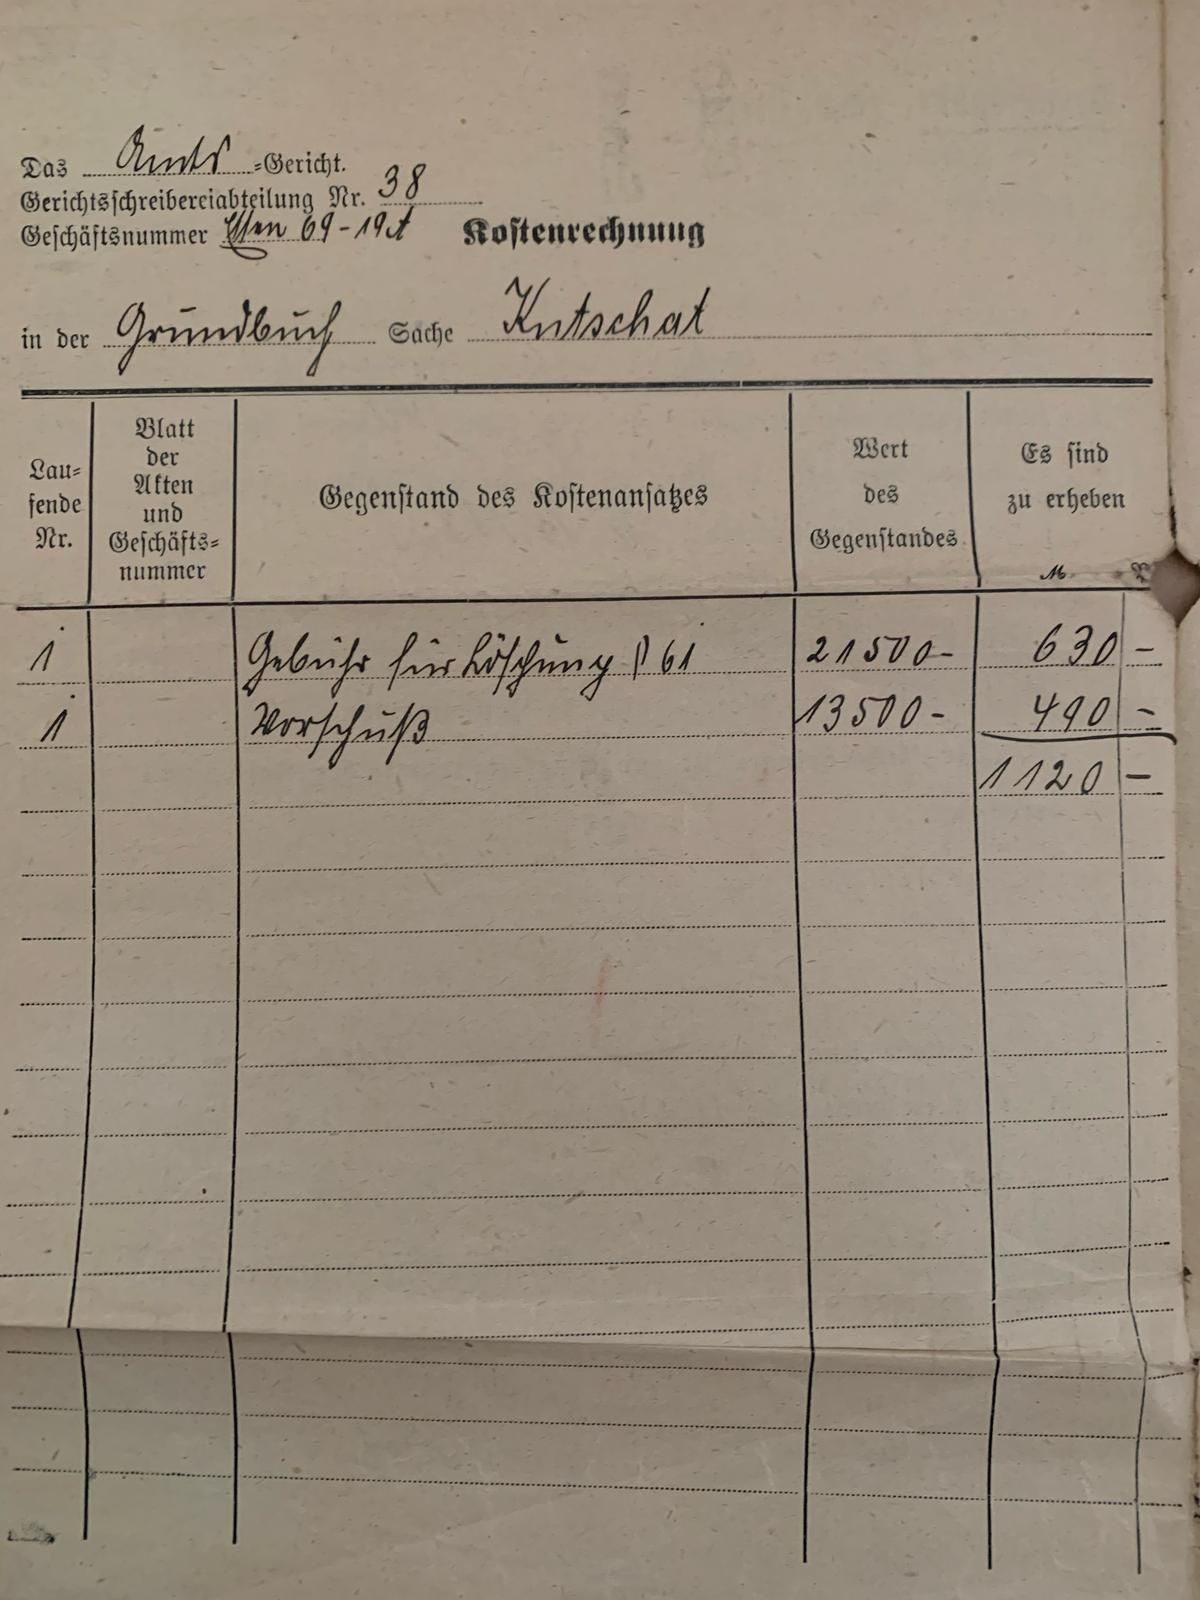 Das Amts-Gericht.
Gerichtsschreibereiabteilung Nr. 38
Geschäftsnummer Essen 69-19 Kostenrechnung
in der Grundbuch Sache Kutschat
Laufende Nr.
Blatt der Akten und Geschäftsnummer
Gegenstand des Kostenansatzes
Wert des Gegenstandes
Es sind zu erheben
M. P
1 Gebühr für Löschung § 61 21500- 630 -
1 Vorschuß 13500- 490 -
1120 -